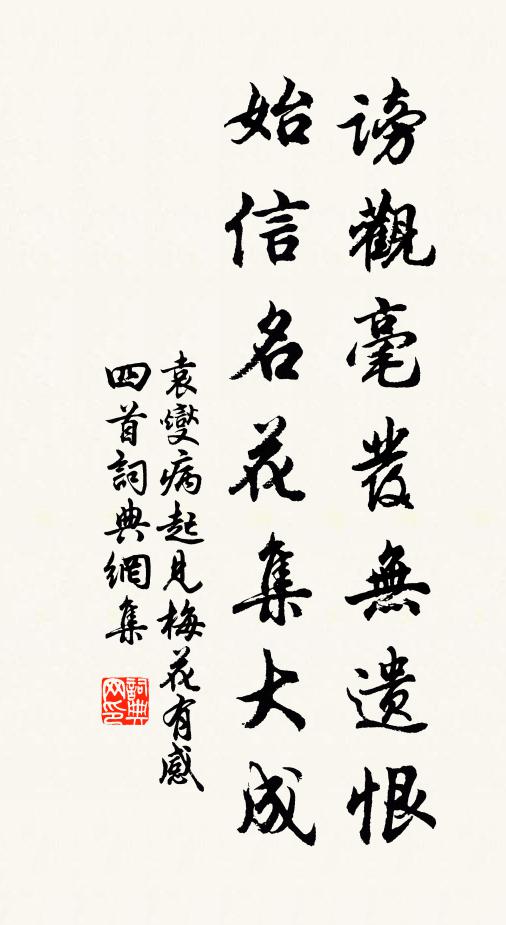 謗觀毫發無遺恨
始信名花集大成
袁燮病起見梅花有感
四首詞典網集
詞典
网印